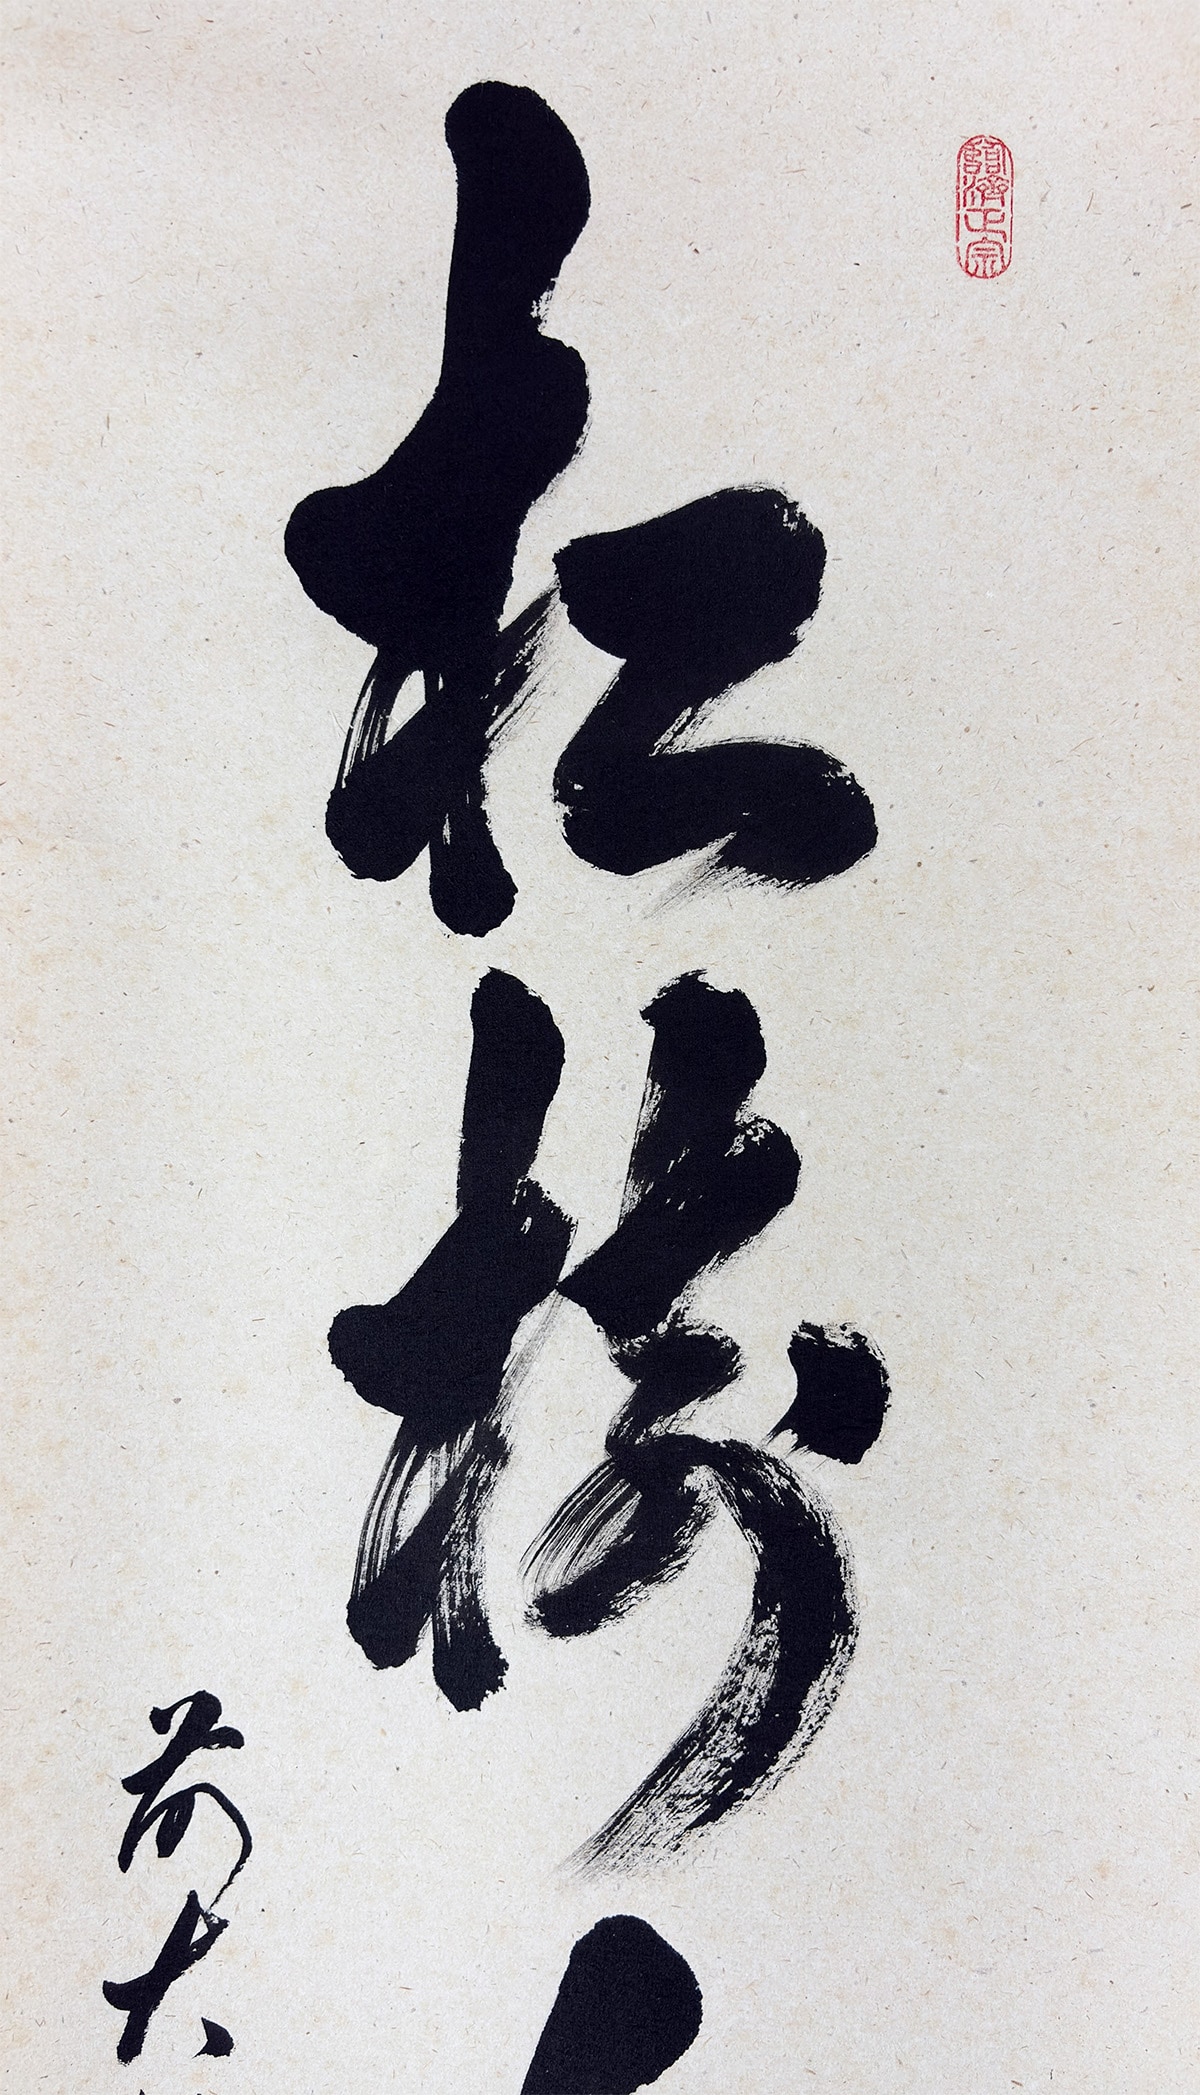 臨濟正宗
松樹
前大